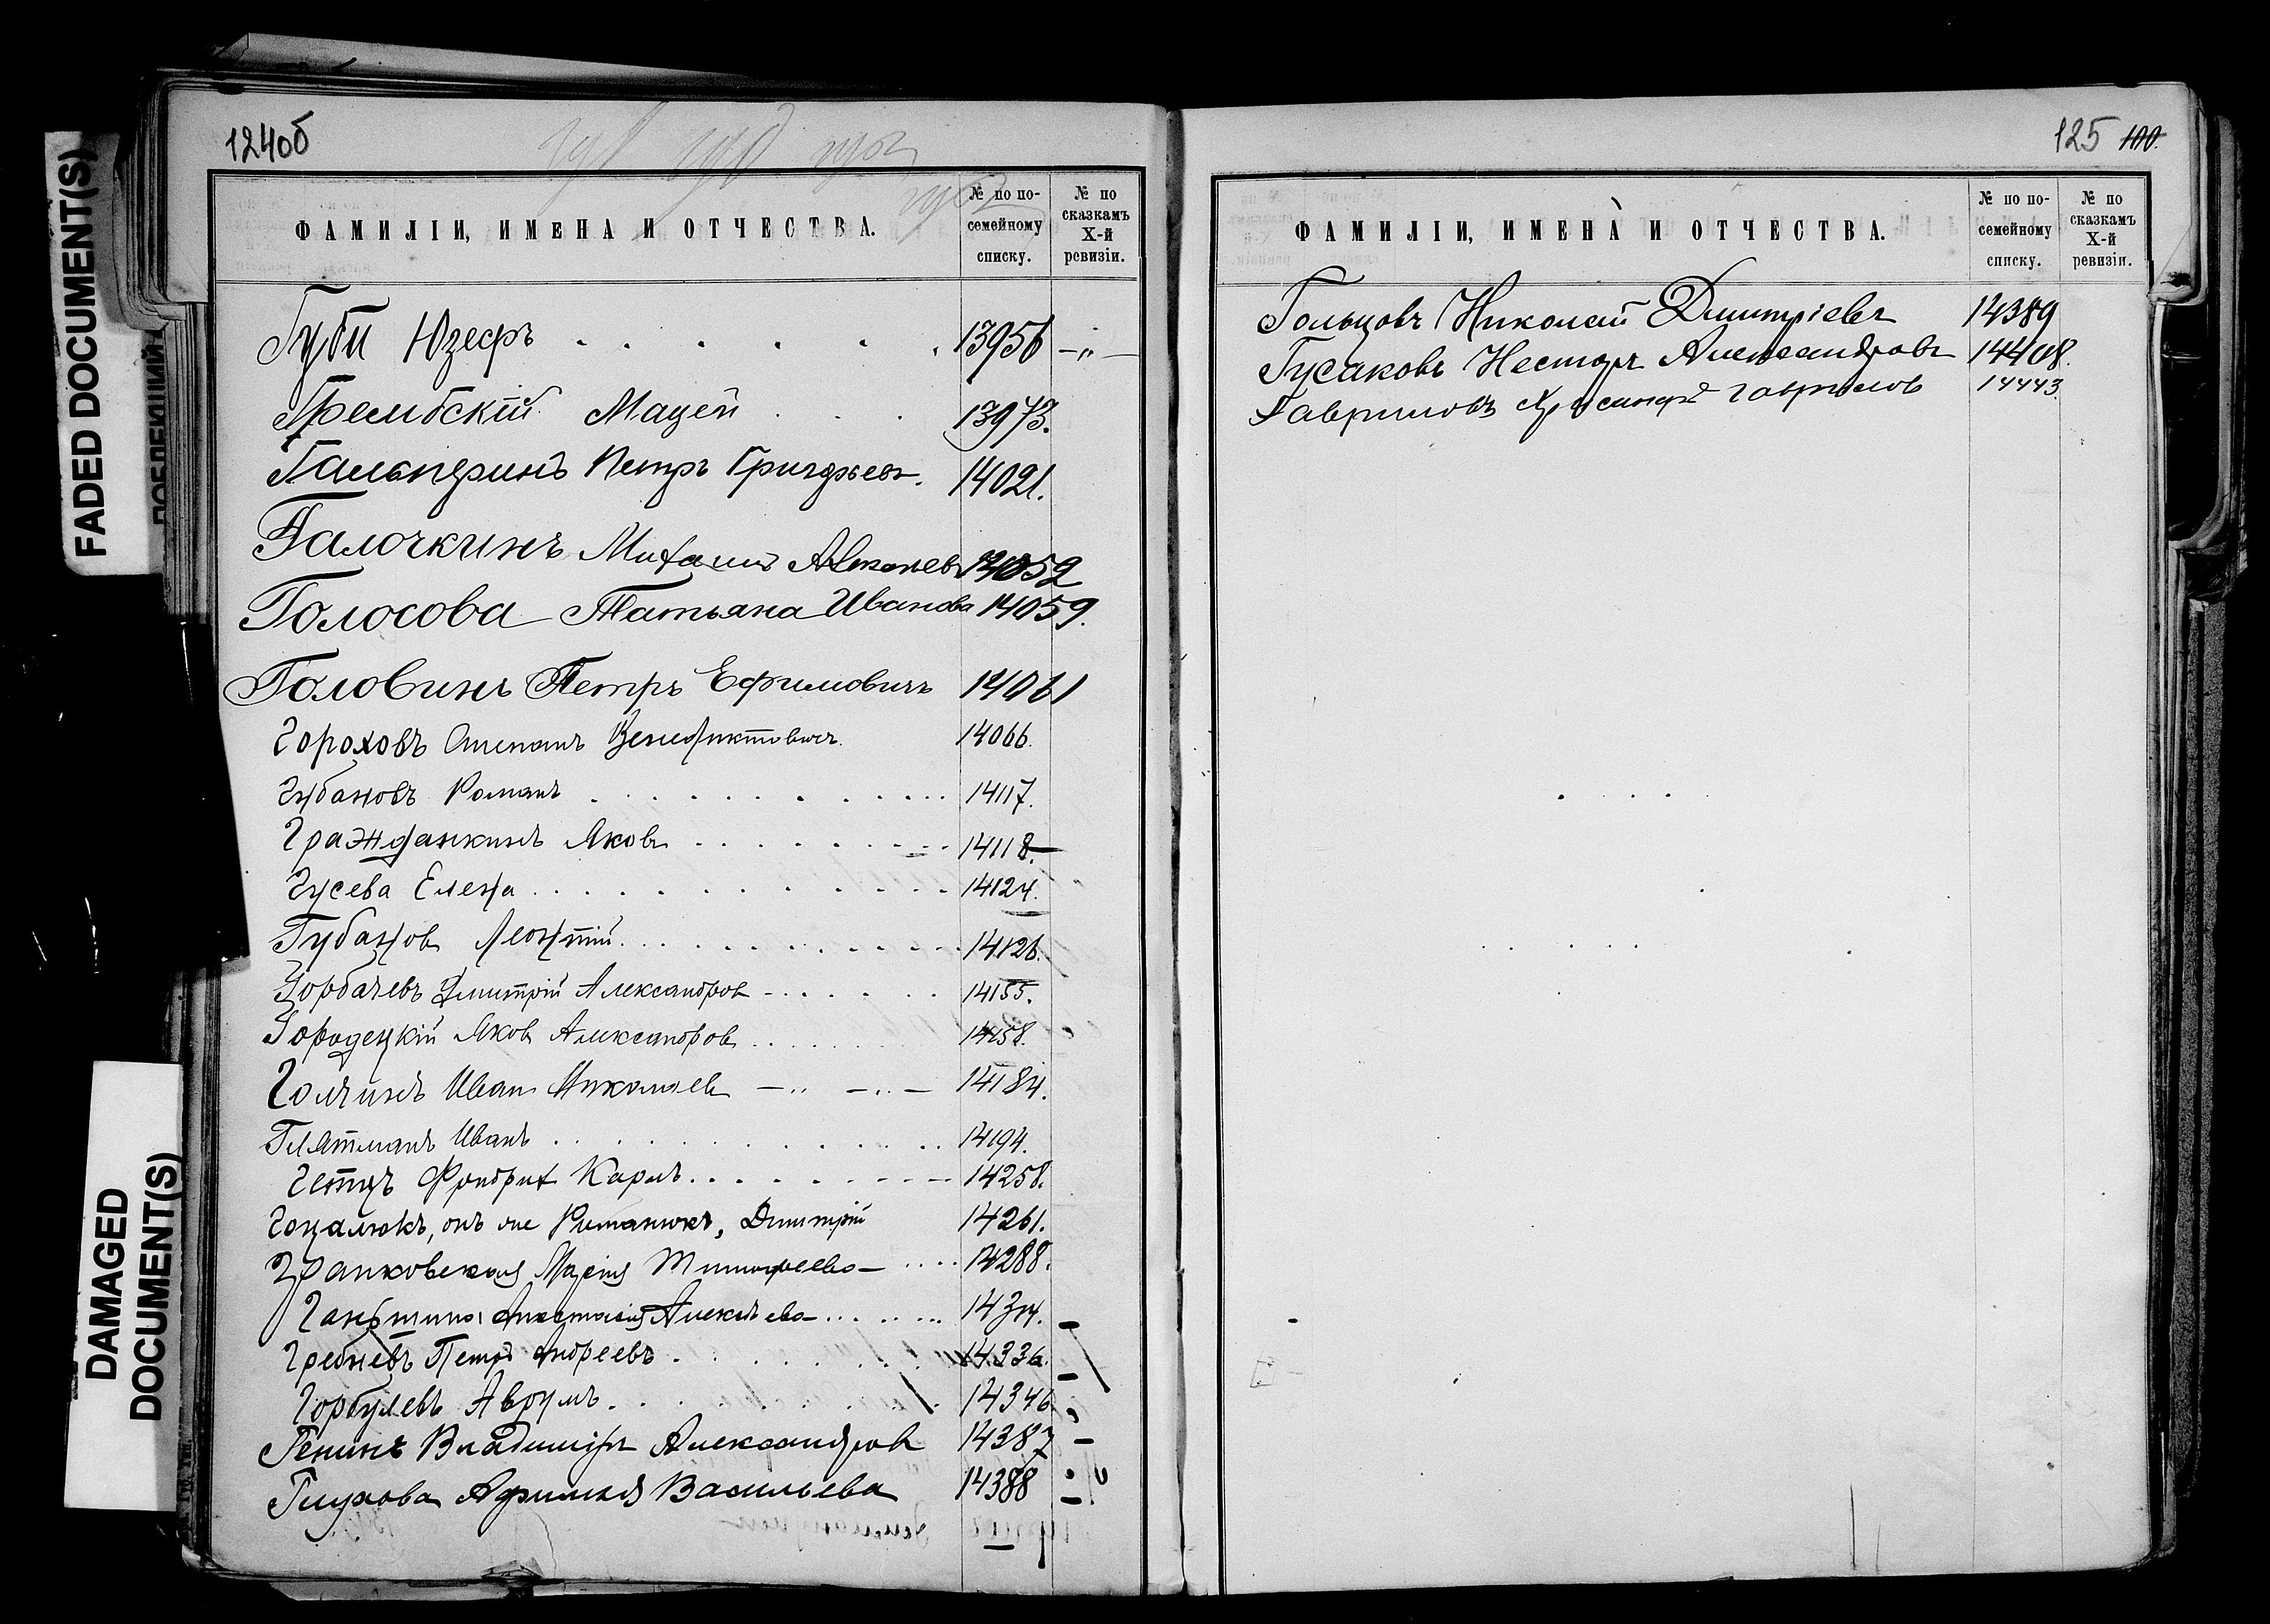 124об
ФАМИЛІИ, ИМЕНА И ОТЧЕСТВА.
№ по по-
семейному
списку.
№ по
сказкамъ
X-й
ревизіи.
Губи Юзефъ 13956 —„—
Грембскій Мацей 13973.
Гальперинъ Петръ Григорьев. 14021.
Галочкинъ Михаилъ 14052
Голосова Татьяна Иванова 14059.
Головинъ Петръ Ефимовичъ 14061
Гороховъ Степанъ Венедиктович. 14066.
Губановъ Романъ 14117.
Гражданкинъ Яковъ 14118.
Гусева Елена 14124.
Губанов Леонтій 14126.
Горбачевъ Дмитрій Александров 14155.
Городецкій Яков Александров 14158.
Иван Николаев 14184.
Глятманъ Иванъ 14194.
Гетцъ Фридрих Карлъ 14258.
Гоцалюкъ, онъ же Романюкъ, Дмитрій 14261.
Марія Тимофеева 14288.
Анастасія Алексѣева
Гребневъ Петръ Андреевъ 14336.
Горбулевъ Аврумъ 14346
Генинъ Владиміръ Александров 14387
Глухова Афимія Васильева 14388
125 100.
ФАМИЛІИ, ИМЕНА И ОТЧЕСТВА.
№ по по-
семейному
списку.
№ по
сказкамъ
X-й
ревизіи.
Гольцовъ Николай Дмитріевъ 14389
Гусаковъ Несторъ Александровъ 14408.
Гавриловъ Гаврилов 14443
FADED DOCUMENT(S)
DAMAGED
DOCUMENT(S)